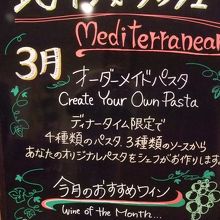 Mediterranean
3月
オーダーメイドパスタ
Create Your Own Pasta
ディナータイム限定で
4種類のパスタ、3種類のソースから
あなたのオリジナルパスタをシェフがお作ります。
今月のおすすめワイン
Wine of the Month...